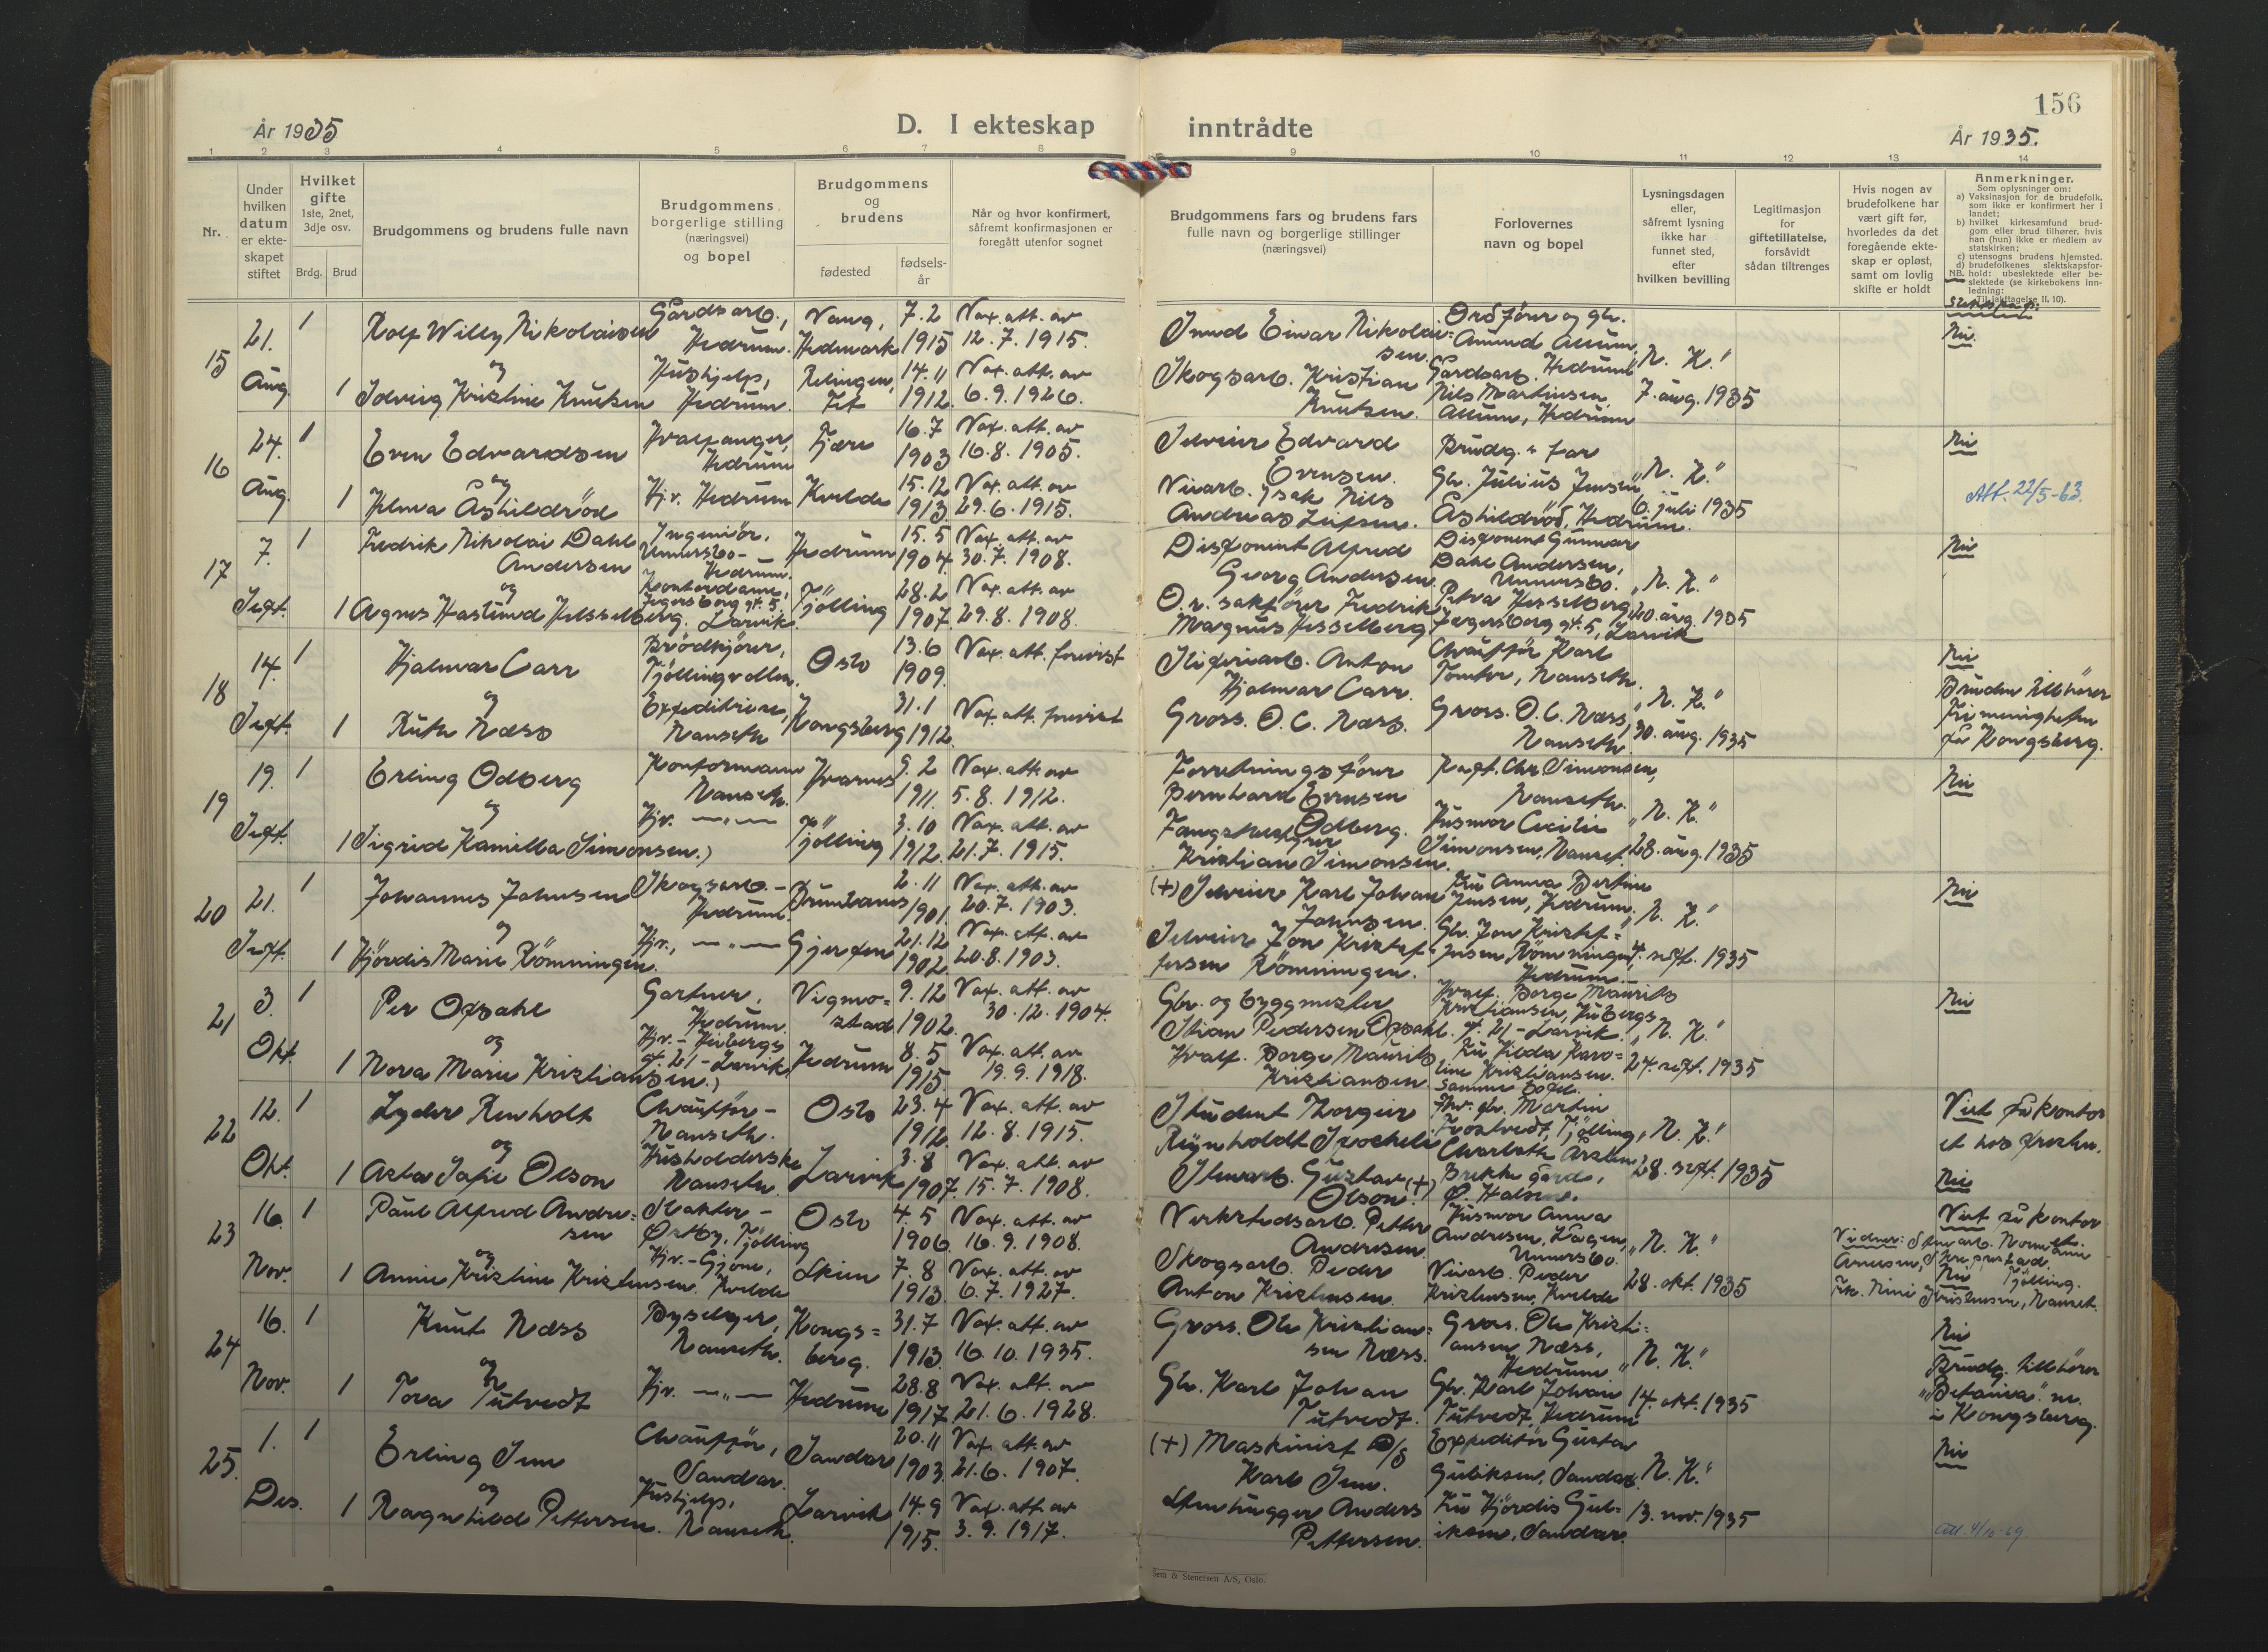 156
År 1935
D. I ekteskap inntrådte
År 1935.
1 2 3 4 5 6 7 8 9 10 11 12 13 14
Nr.
Under hvilken datum er ekteskapet stiftet
Hvilket gifte 1ste, 2net, 3dje osv.
Brdg. Brud
Brudgommens og brudens fulle navn
Brudgommens borgerlige stilling (næringsvei) og bopel
Brudgommens og brudens
fødested
fødselsår
Når og hvor konfirmert, såfremt konfirmasjonen er foregått utenfor sognet
Brudgommens fars og brudens fars fulle navn og borgerlige stillinger (næringsvei)
Forlovernes navn og bopel
Lysningsdagen eller, såfremt lysning ikke har funnet sted, efter hvilken bevilling
Legitimasjon for giftetillatelse, forsåvidt sådan tiltrenges
Hvis nogen av brudefolkene har vært gift før, hvorledes da det foregående ekteskap er opløst, samt om lovlig skifte er holdt
Anmerkninger.
Som oplysninger om:
a) Vaksinasjon for de brudefolk, som ikke er konfirmert her i landet;
b) hvilket kirkesamfund brudgom eller brud tilhører, hvis han (hun) ikke er medlem av statskirken;
c) utensogns brudens hjemsted.
d) brudefolkenes slektskapsforhold: ubeslektede eller beslektede (se kirkebokens innledning:
NB.
15
21. Aug.
1
Rolf Willy Nikolaisen
Gårdsarb., Hedrum.
Vang, Hedmark
7.2 1915
Vax. att. av 12.7.1915.
Einar Nikolaisen.
Ordfører og gbr. Amund Allum, Hedrum
"N. K."
7. aug. 1935
Nei.
og
1
Solveig Kristine Knutsen
Hushjelp, Hedrum.
Fet
14.11 1912.
Vax. att. av 6.9.1926.
Skogsarb. Kristian Knutsen.
Gårdsarb. Nils Martinsen, Allum, Hedrum
16
24. Aug.
1
Even Edvardsen
Hvalfanger, Hedrum
Fjære
16.7 1903
Vax. att. av 16.8.1905.
Edvard Evensen.
Brudg.s far
"N. K."
6. juli 1935
Nei
Att. 22/5-63.
og
1
Åshildrød
Hjv. Hedrum
Kvelde
15.12 1913
Vax. att. av 29.6.1915.
Nils Andreas
Gbr. Julius Jensen Åshildrød, Hedrum.
17
7. Sept.
1
Fredrik Nikolai Dahl Andersen
Ingeniør, Unnersbo - Hedrum.
Hedrum
15.5 1904
Vax. att. av 30.7.1908.
Disponent Alfred Georg Andersen.
Disponent Gunnar Dahl Andersen, Unnersbo.
"N. K."
20. aug. 1935
Nei
og
1
Agnes Haslund Hesselberg.
Kontordame, Jegersborg gt. 5. Larvik.
Tjølling
28.2 1907.
Vax. att. av 29.8.1908.
O.r. sakfører Fredrik Magnus Hesselberg
Petra Hesselberg, Jegersborg gt. 5, Larvik
18
14. Sept.
1
Hjalmar Carr
Brødkjører, Tjøllingvollen.
Oslo
13.6 1909.
Vax. att. forevist
Anton Hjalmar Carr.
Chauffør Karl Tomter, Nanseth.
"N. K."
30. aug. 1935
Nei
Bruden tilhører Frimenigheten på Kongsberg.
og
1
Ruth Næss
Expeditrise, Nanseth
Kongsberg
31.1 1912.
Vax. att. forevist
Gross. O. C. Næss.
Gross. O. C. Næss, Nanseth.
19
19. Sept.
1
Erling Odberg
Nanseth.
Hvarnes
9.2 1911.
Vax. att. av 5.8.1912.
Forretningsfører Bernhard Evensen Odberg.
Kapt. Chr. Simonsen, Nanseth.
"N. K."
28. aug. 1935
Nei
og
1
Sigrid Kamilla Simonsen.
Hjv. — " —
Tjølling
3.10 1912.
Vax. att. av 21.7.1915.
Kristian Simonsen.
Husmor Cecilie Simonsen, Nanset.
20
21. Sept.
1
Johannes Johnsen
Skogsarb. - Hedrum.
Brunlanes
2.11 1901.
Vax. att. av 20.7.1903.
(+) Karl Johan Johnsen.
Fru Anna Bertine Jensen, Hedrum.
"N. K."
4. sept. 1935
Nei
og
1
Hjördis Marie Römmingen.
Hjv., — " —
Gjerpen
21.12 1902.
Vax. att. av 20.8.1903.
Jon Kristofersen Römmingen.
Gbr. Jon Kristof= Jensen Römmingen, Hedrum.
21
3. Okt.
1
Per Opsahl
Gartner, Hedrum.
Vigmo=stad
9.12 1902.
Vax. att. av 30.12.1904.
Gbr. og byggmester Stian Pedersen Opsahl.
Hvalf. Borge Maurits Kristiansen, Hibergs gt. 21 - Larvik.
"N. K."
24. sept. 1935
Nei
og
1
Nora Marie Kristiansen.
Hjv. - Hibergs gt. 21 - Larvik.
Hedrum
8.5 1915.
Vax. att. av 19.9.1918.
Hvalf. Borge Maurits Kristiansen.
Fru Hilda Karo=line Kristiansen. samme bopel.
22
12. Okt.
1
Lyder Renholt
Chauffør - Nanseth.
Oslo
23.4 1912.
Vax. att. av 12.8.1915.
Student Thorgeir
gbr. Martin Tjølling,
"N. K."
28. sept. 1935
Viet på kontoret hos presten.
Nei
og
1
Asta Sofie Olson
Husholderske Nanseth.
Larvik
3.8 1907.
Vax. att. av 15.7.1908.
Gustav (+) Olson.
Brekke gård, Ø. Halsen.
23
16. Nov.
1
Paul Alfred Andre=sen
Slakter - Østby, Tjølling
Oslo
4.5 1906.
Vax. att. av 16.9.1908.
Verkstedsarb. Petter Andresen.
Husmor Anna Andresen, Unnersbo.
"N. K."
28. okt. 1935
Viet på kontoret.
Nei
Vidner: Stenarb. Normann Arnesen, Tjølling. Frk. Nini Kristensen, Nanset.
og
1
Annie Kristine Kristensen.
Hjv. - Gjone, Kvelde
Skien
7.8 1913.
Vax. att. av 6.7.1927.
Skogsarb. Peder Anton Kristensen.
Peder Kristensen, Kvelde
24
16. Nov.
1
Knut Næss
Nanseth.
Kongs=berg.
31.7 1913.
Vax. att. av 16.10.1935.
Gross. Ole Kristian=sen Næss.
Gross. Ole Kristi=ansen Næss, Hedrum
"N. K."
14. okt. 1935
Nei
Brudg. tilhører "Betania" m. i Kongsberg.
og
1
Tora Tutvedt
Hjv. — " —
Hedrum
28.8 1917.
Vax. att. av 21.6.1928.
Gbr. Karl Johan Tutvedt.
Gbr. Karl Johan Tutvedt, Hedrum
25.
1. Des.
1
Erling Jun
Chauffør, Sandar.
Sandar
20.11 1903.
Vax. att. av 21.6.1907.
(+) Maskinist D/S Karl Jun.
Expeditør Gustav Guliksen, Sandar.
"N. K."
13. nov. 1935
Nei
og
1
Ragnhild Pettersen.
Hushjelp, Nanseth.
Larvik
14.9 1915.
Vax. att. av 3.9.1917.
Stenhugger Anders Pettersen.
Fru Hjördis Gul=iksen, Sandar.
Sem & Stenersen A/S, Oslo.